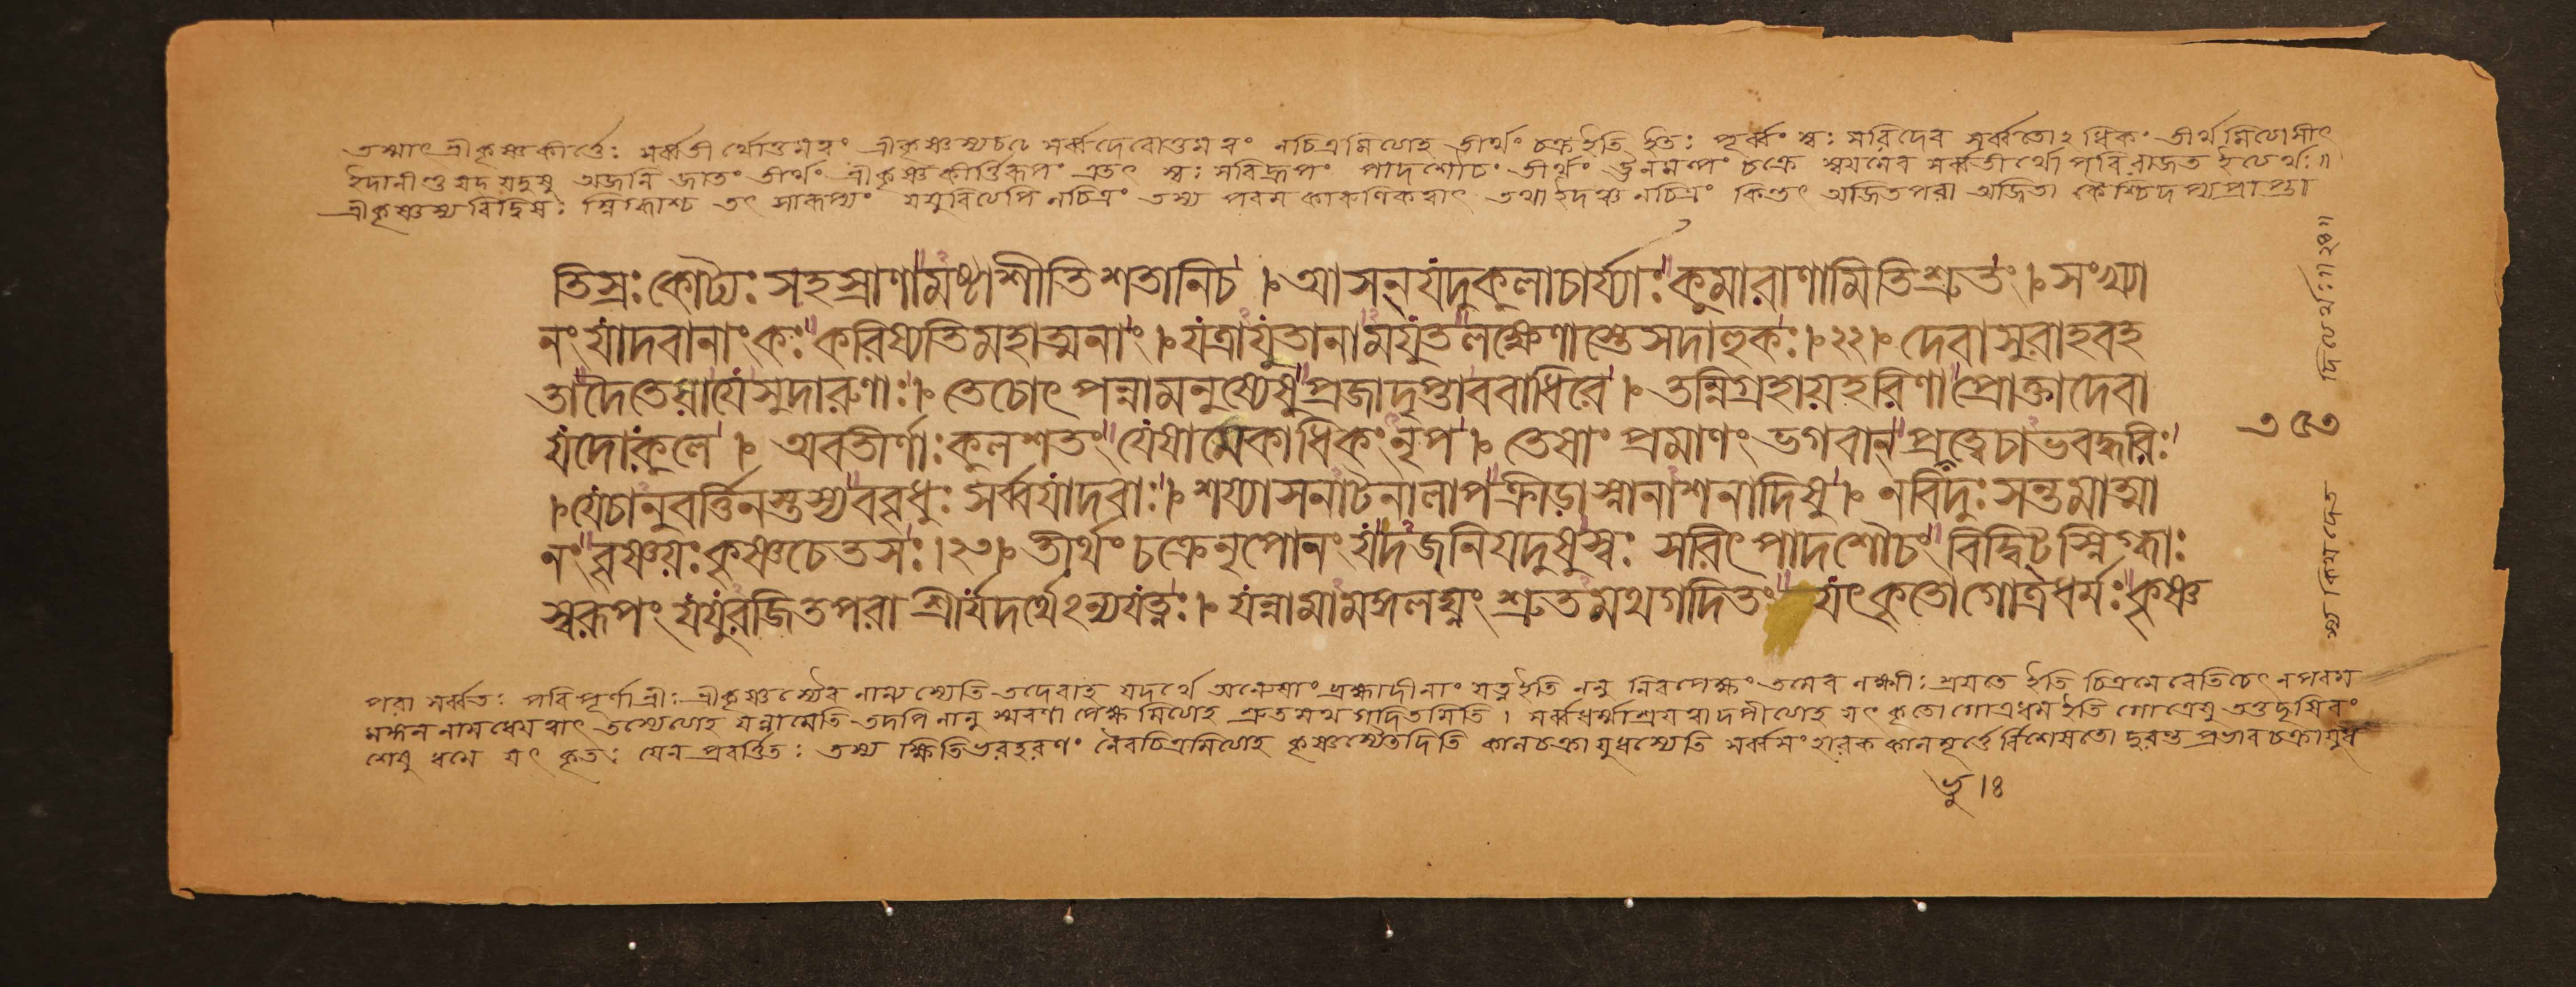 তস্মাৎ শ্রীকৃষ্ণকীর্ত্তেঃ সর্ব্বতীর্থোত্তমত্বং শ্রীকৃষ্ণস্যচ সর্ব্বদেবোত্তমত্বং নচিত্রমিত্যাহ তীর্থং চক্রইতি ইতঃ পূর্ব্বং স্বঃ সরিদেব সর্ব্বতোঽধিকং তীর্থমিত্যাসীৎ
ইদানীন্তু যদ যদুষু অজনি জাতং তীর্থং শ্রীকৃষ্ণকীর্ত্তিরূপং এতৎ স্বঃ সরিদ্রূপং পাদশৌচং তীর্থং ঊনমল্পং চক্রে স্বয়মেব সর্ব্বতীর্থোপরি বিরাজত ইত্যর্থঃ॥
শ্রীকৃষ্ণস্য বিদ্বিষঃ স্নিগ্ধাশ্চ তৎ সারূপ্যং যযুরিত্যপি নচিত্রং তস্য পরম কারুণিকত্বাৎ তথা ইদঞ্চ নচিত্রং কিন্তৎ অজিতপরা অজিতা কৈশ্চিদপ্যপ্রাপ্তা
তিস্রঃ কোট্যঃ সহস্রাণামষ্টাশীতিশতানিচ । আসন্ যদুকুলাচার্য্যাঃ কুমারাণামিতিশ্রুতং । সংখ্যা
নং যাদবানাং কঃ করিষ্যতিমহাত্মনাং । যত্রাযুতানামযুতলক্ষেণাস্তেসদাহুকঃ ।২২। দেবাসুরাহবহ
তাদৈতেয়াযেসুদারুণাঃ । তেচোৎপন্নামনুষ্যেষু প্রজাদৃপ্তাববাধিরে । তন্নিগ্রহায়হরিণাপ্রোক্তাদেবা
যদোঃকুলে । অবতীর্ণাঃকুলশতং যেষামেকাধিকংনৃপ । তেষাং প্রমাণং ভগবান্ প্রভুত্বেচাভবদ্ধরিঃ
।যেচানুবর্ত্তিনস্তস্যববৃধুঃ সর্ব্বযাদবাঃ । শয্যাসনাটনালাপক্রীড়াস্নানাশনাদিষু । নবিদুঃ সন্তমাত্মা
নং বৃষ্ণয়ঃ কৃষ্ণচেতসঃ ।২৩। তীর্থং চক্রেনৃপোনং যদজনিযদুষুস্বঃ সরিৎ পাদশৌচং বিদ্বিট্স্নিগ্ধাঃ
স্বরূপং যযুরজিতপরা শ্রীর্যদর্থেঽন্যযত্নঃ । যন্নামামঙ্গলঘ্নং শ্রুতমথগদিতং যৎকৃতোগোত্রধর্মঃ কৃষ্ণ
পরা সর্ব্বতঃ পরিপূর্ণা শ্রীঃ শ্রীকৃষ্ণস্যৈব নান্যস্যেতি তদেবাহ যদর্থে অন্যেষাং ব্রহ্মাদীনাং যত্নইতি ননু নিরপেক্ষং তমেব লক্ষ্মীঃ শ্রয়তে ইতি চিত্রমেবেতিচেৎ নপরম
মঙ্গল নামধেয়ত্বাৎ তস্যেত্যাহ যন্নামেতি তদপি নানু স্মরণাপেক্ষমিত্যাহ শ্রুতমথ গদিতমিতি । সর্ব্বধর্ম্মাশ্রয়ত্বাদপীত্যাহ যৎ কৃতো গোত্রধর্ম ইতি গোত্রেষু তত্তদৃষিবং
শেষু ধর্মো যৎ কৃতঃ যেন প্রবর্ত্তিতঃ তস্য ক্ষিতিভরহরণং নৈবচিত্রমিত্যাহ কৃষ্ণস্যৈতদিতি কালচক্রাযুধস্যেতি সর্ব্বসংহারক কালমূর্ত্তের্বিশেষতো দুরন্ত প্রভাব চক্রাযুধ
৩৫৩
স্য কিম্মদেত
দিত্যর্থঃ॥ ২৪॥